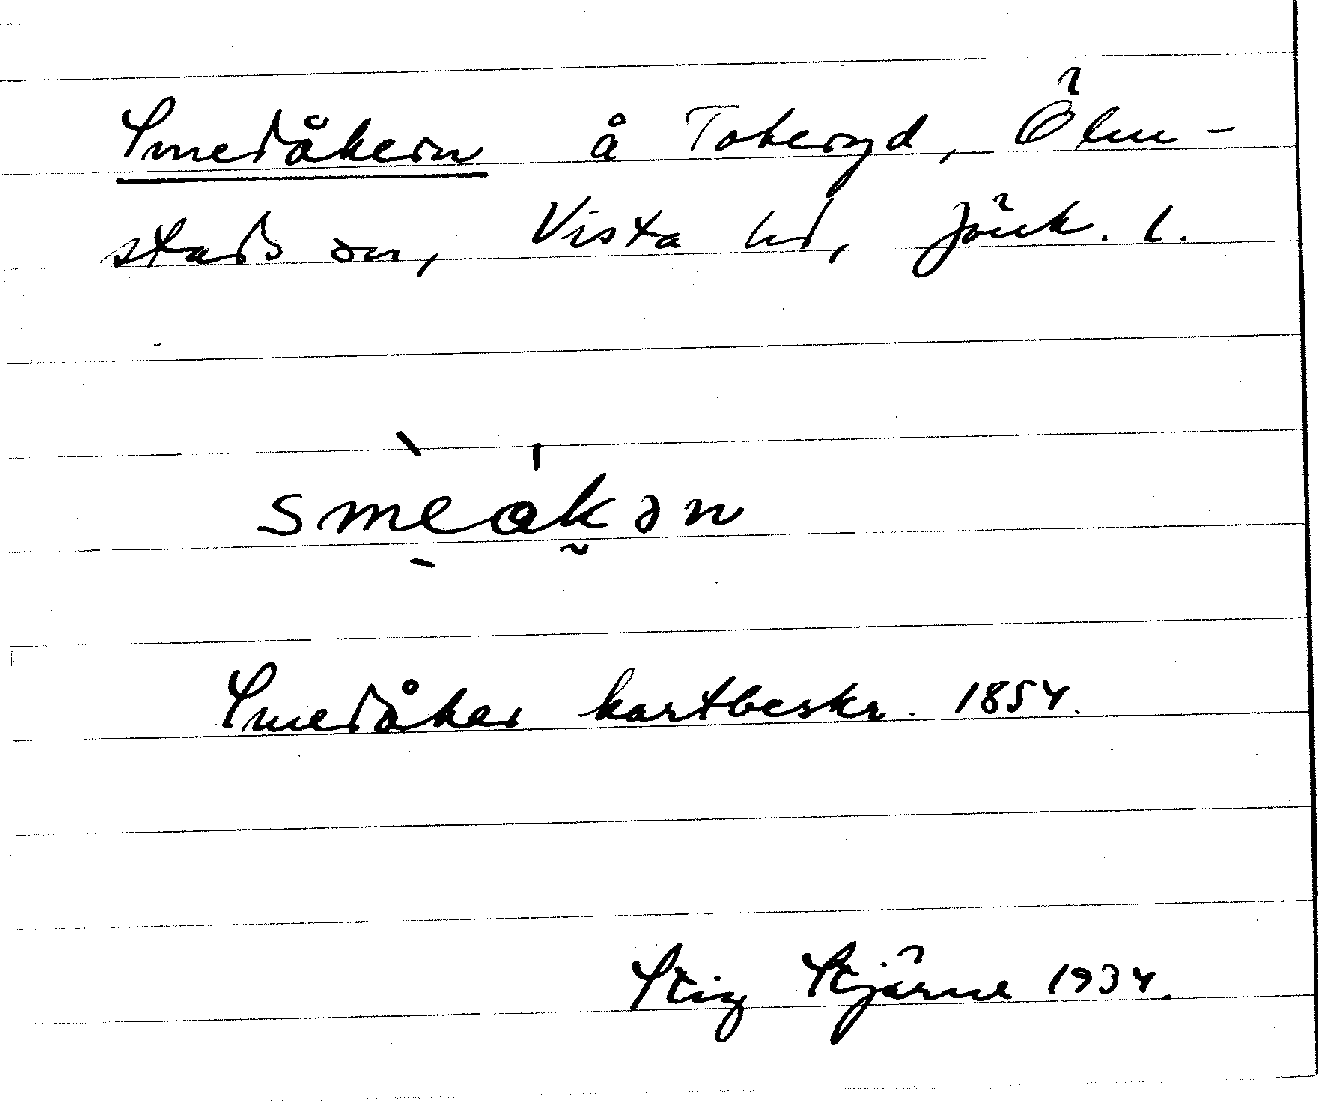 Smedåkern å Taberyd, Ölm-
stads sn, Vista hd, Jönk. l.
smèakən
Smedåker kartbeskr. 1854.
Stig Stjärne 1934.